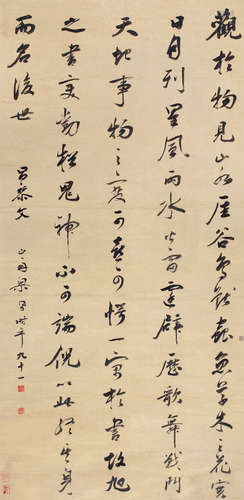 觀於物見山水崖谷鳥獸蟲魚草木之花實
日月列星風雨水火雷霆霹靂歌舞戰鬥
天地事物之變可喜可愕一寓於書故旭
之書變動猶鬼神不可端倪以此終其身
而名後世
昌黎文
山舟梁同書時年九十一